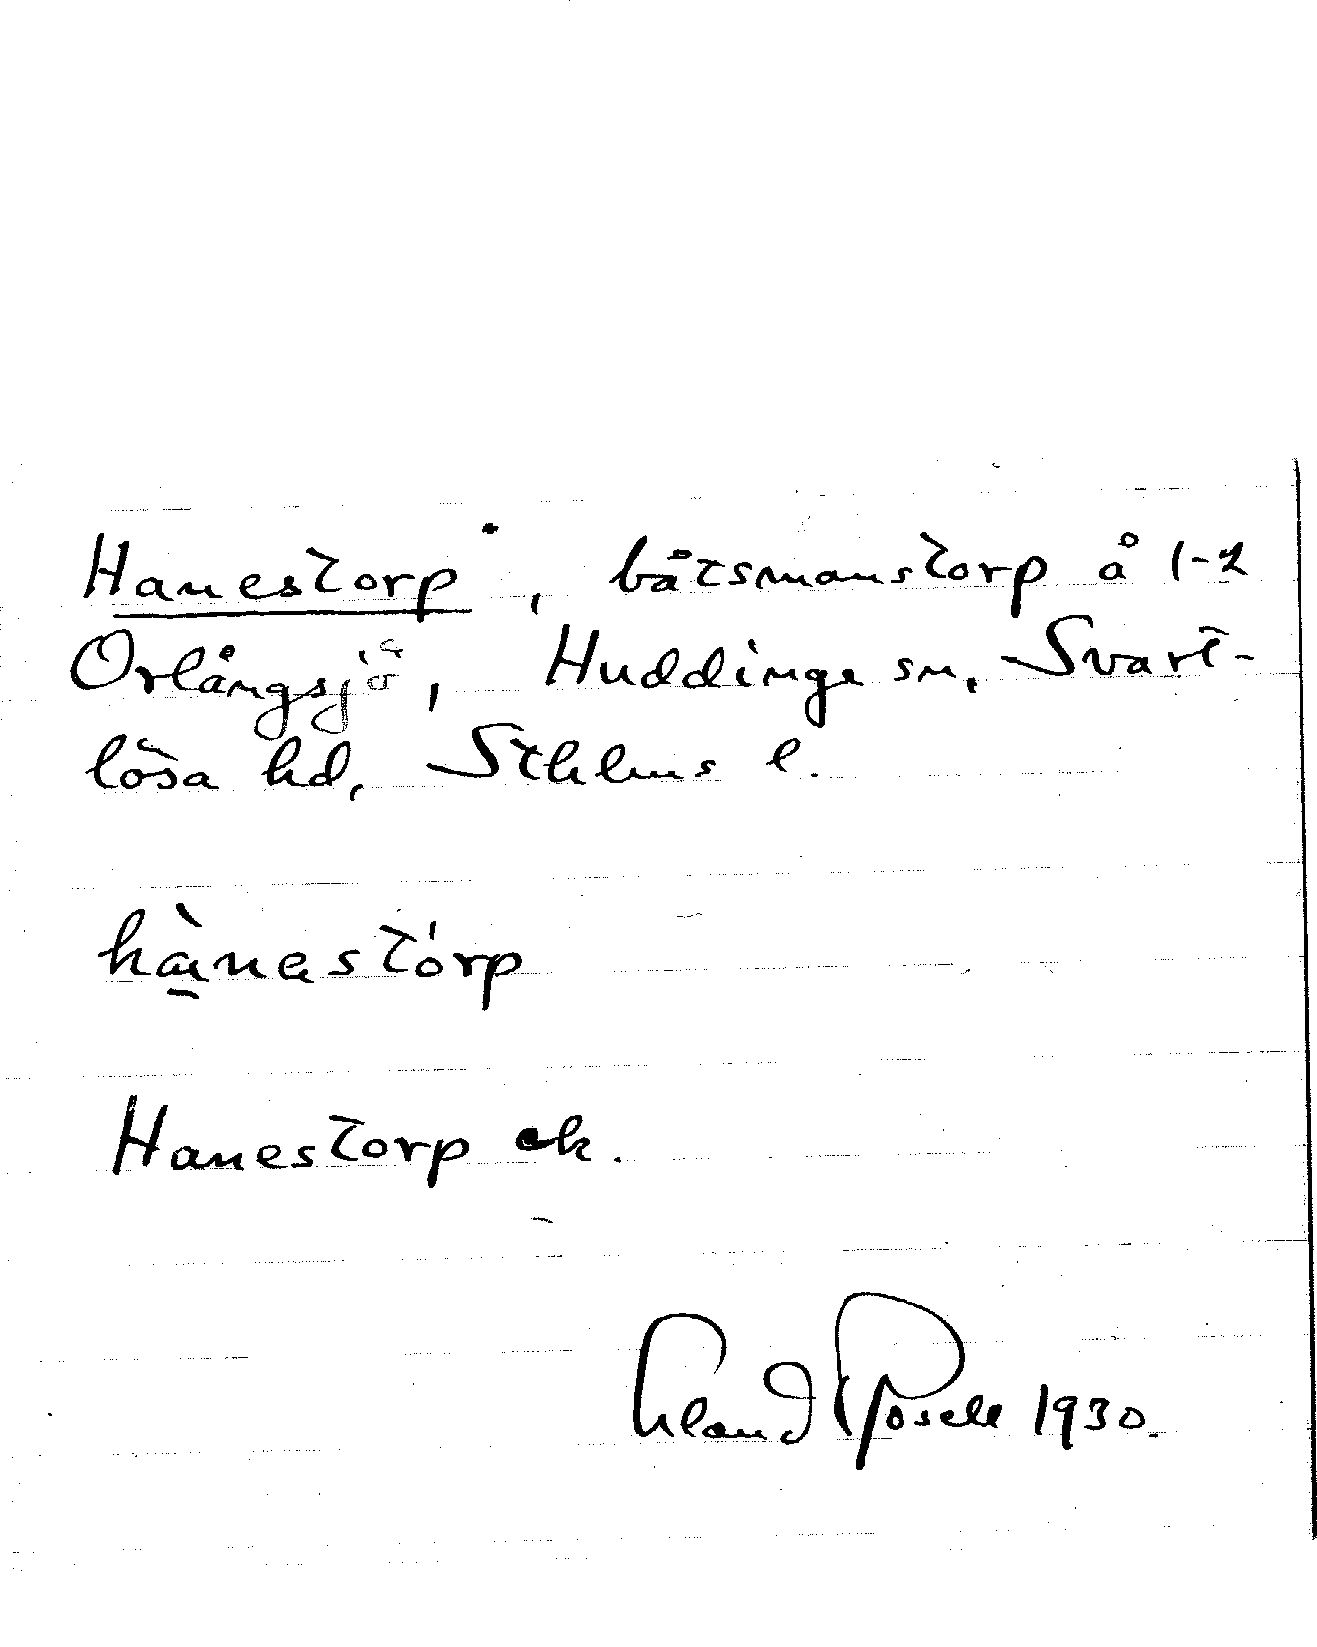 Hanestorp, båtsmanstorp å 1-2
Orlångsjö, Huddinge sn, Svart-
lösa hd, Sthlms l.
hà̱nastórp
Hanestorp ek.
Erland Rosell 1930.